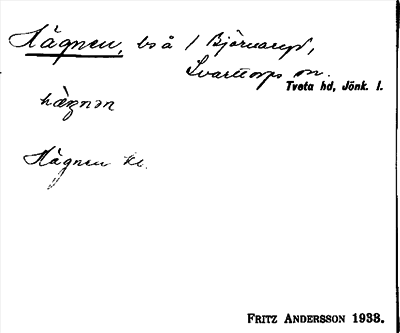 Hägnen, bs å 1 Björnaryd,
Svarttorps sn.
Tveta hd, Jönk. l.
hägnən
Hägnen kl.
FRITZ ANDERSSON 1938.